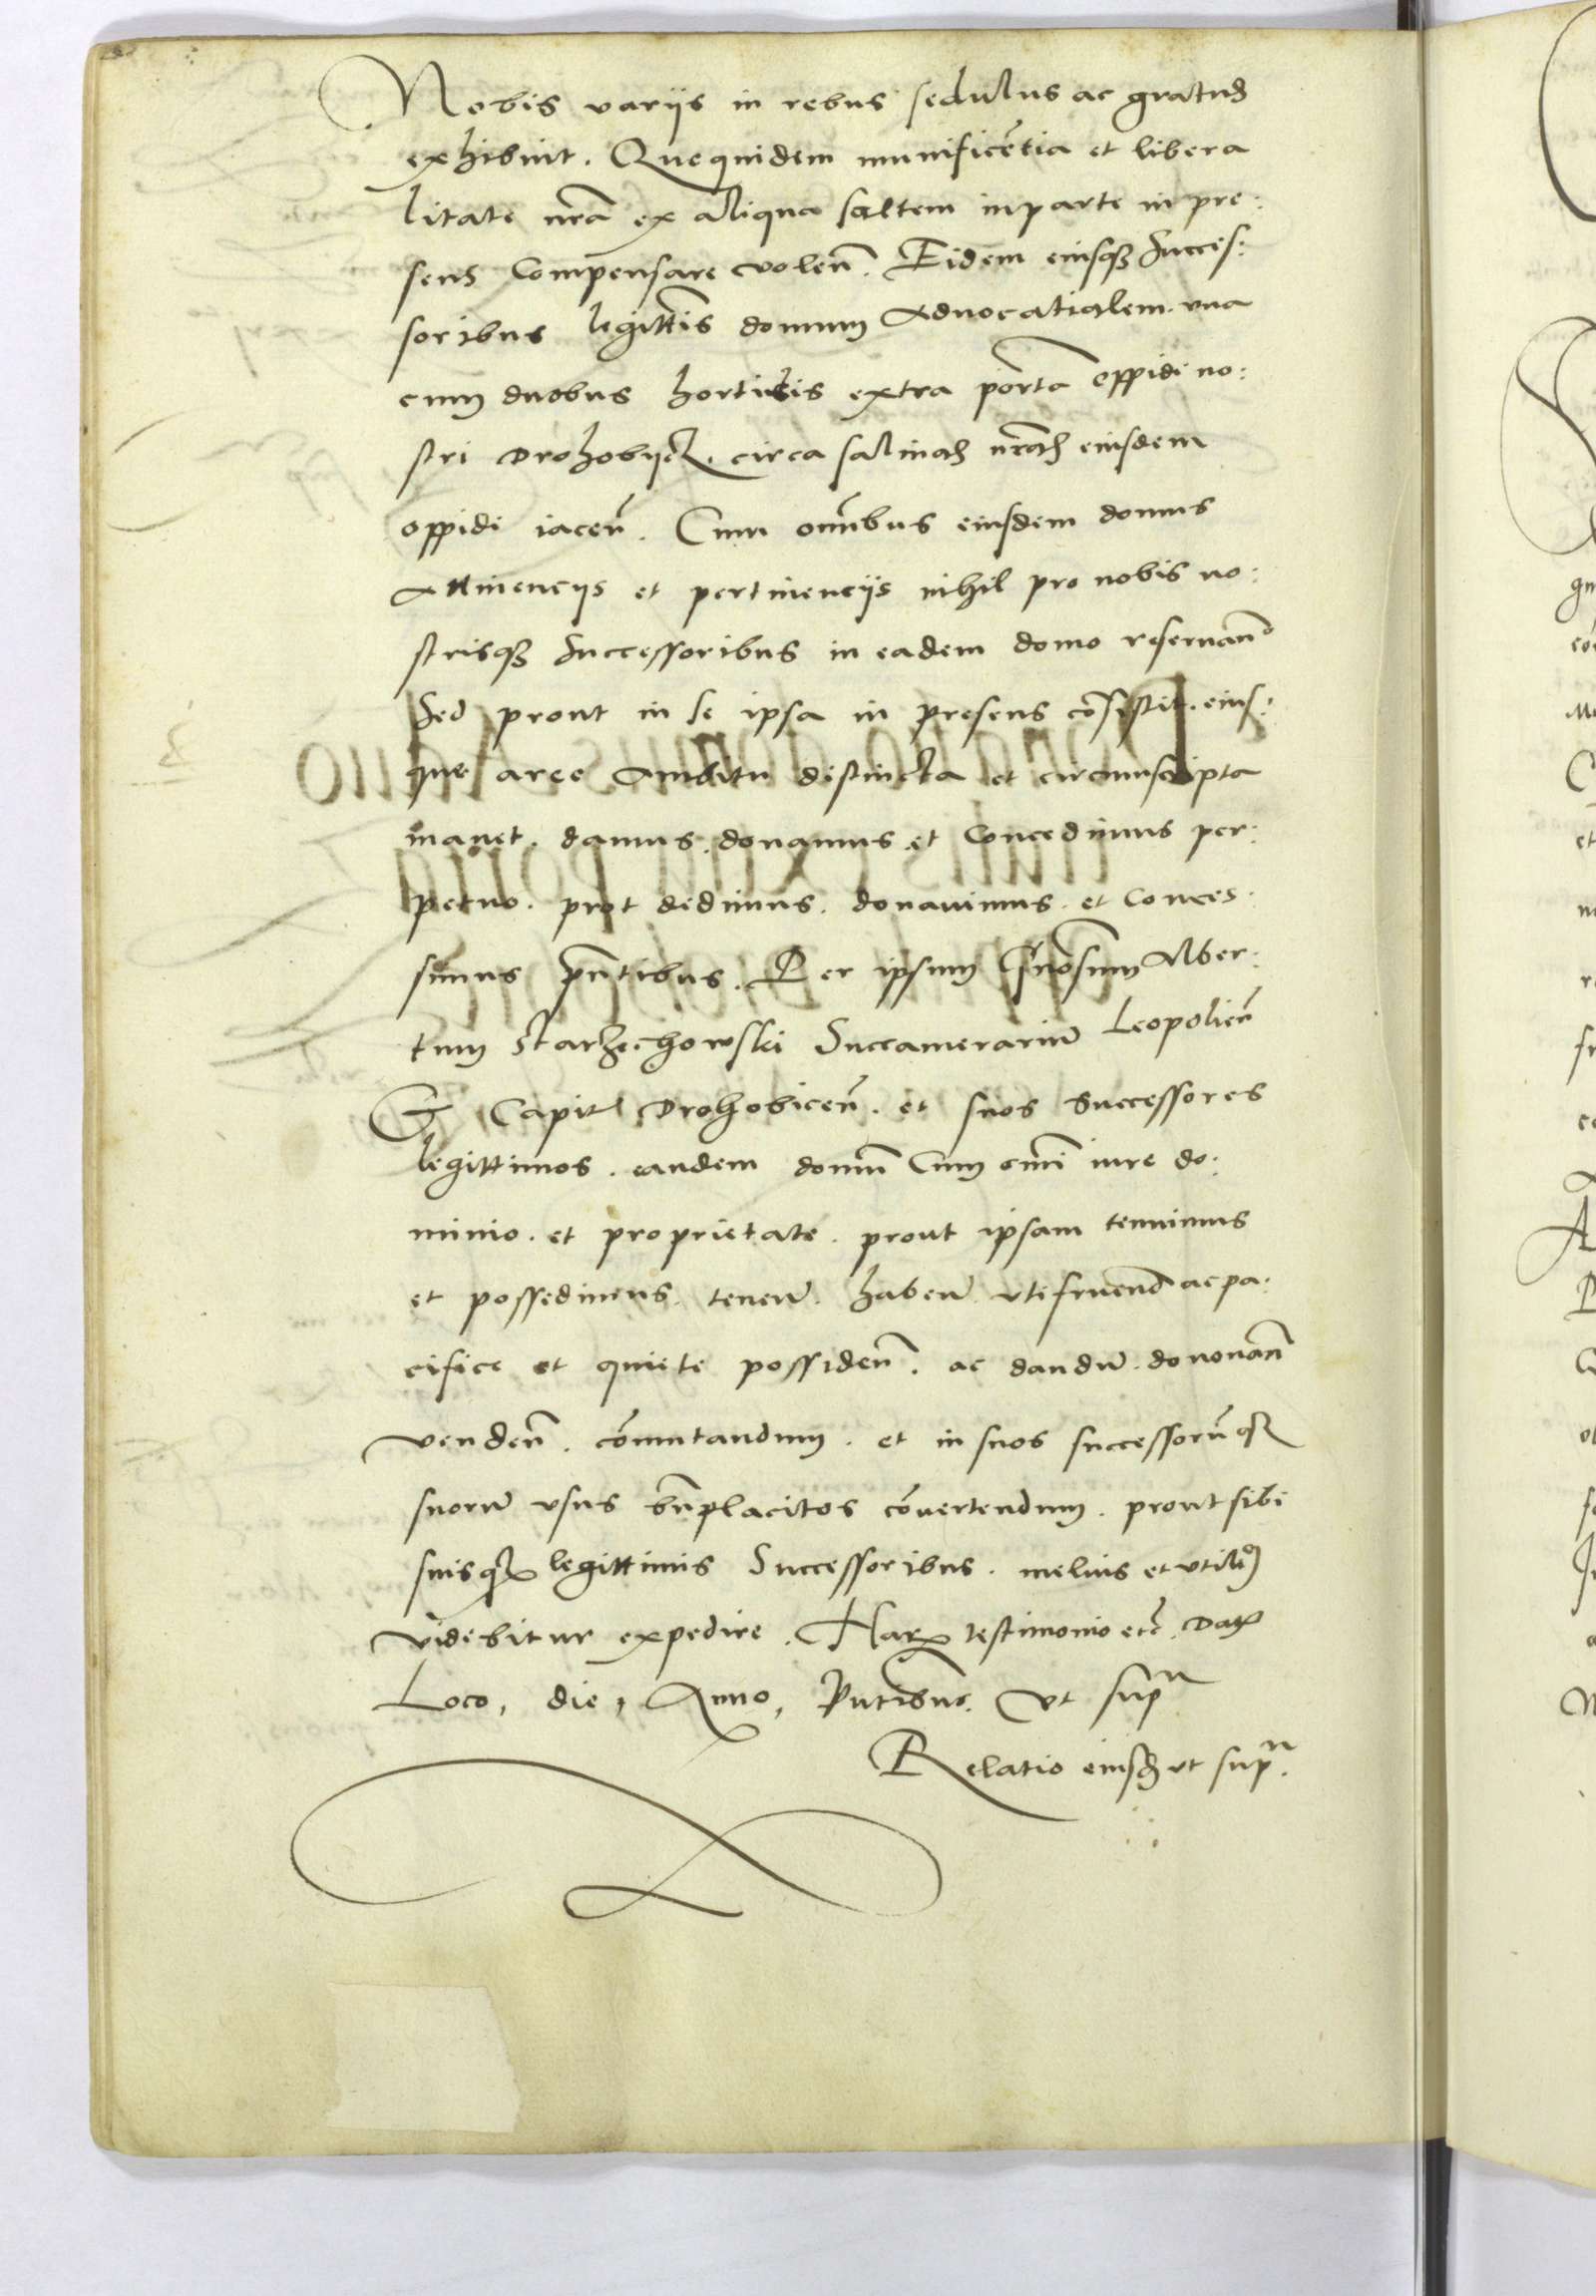 Nobis varijs in rebus sedulus ac gratus
exhibuit. Que quidem munificētia et libera
litate nr̄a ex aliqua saltem in parte in pre:
sens Compensare volen̄. Eidem eiusqȝ Succes:
soribus legittīs domum Aduocatialem vna
cum duobus hortulis extra portā Oppidi no:
stri Drohobijcz. circa salinas nr̄as eiusdem
oppidi iacen̄. Cum omībus eiusdem domus
Attinencijs et pertinencijs nihil pro nobis no:
strisqȝ Successoribus in eadem domo reseruan̄
Sed prout in se ipsa in presens cōsistit. eius:
que aree Ambitu distincta et circumscripta
manet. damus. donamus et Concedimus per:
petuo. prot dedimus. donauimus. et Conces:
simus pn̄tibus. Per ipsum Gn̄osum Alber:
tum Starzechowski Succamerariū Leopolien̄
Et Capit Drohobicen̄. et suos Successores
legittimos. eandem domū Cum omī iure do:
minio. et proprietate. prout ipsam tenuimus
et possedimus. tenen̄. haben̄ vtifruend ac pa:
cifice et quiete possiden̄. ac dandū. dononan̄
venden̄. cōmutandum. et in suos successorūqȝ
suorū vsus bn̄placitos cōuertendum. prout sibi
suisqȝ legittimis Successoribus. melius et vtiliꝰ
videbitur expedire. Harꝝ testimonio etc̄. Datꝝ
Loco, die, Anno, Pn̄tibus. Vt supra
Relatio eiusdē vt supra.